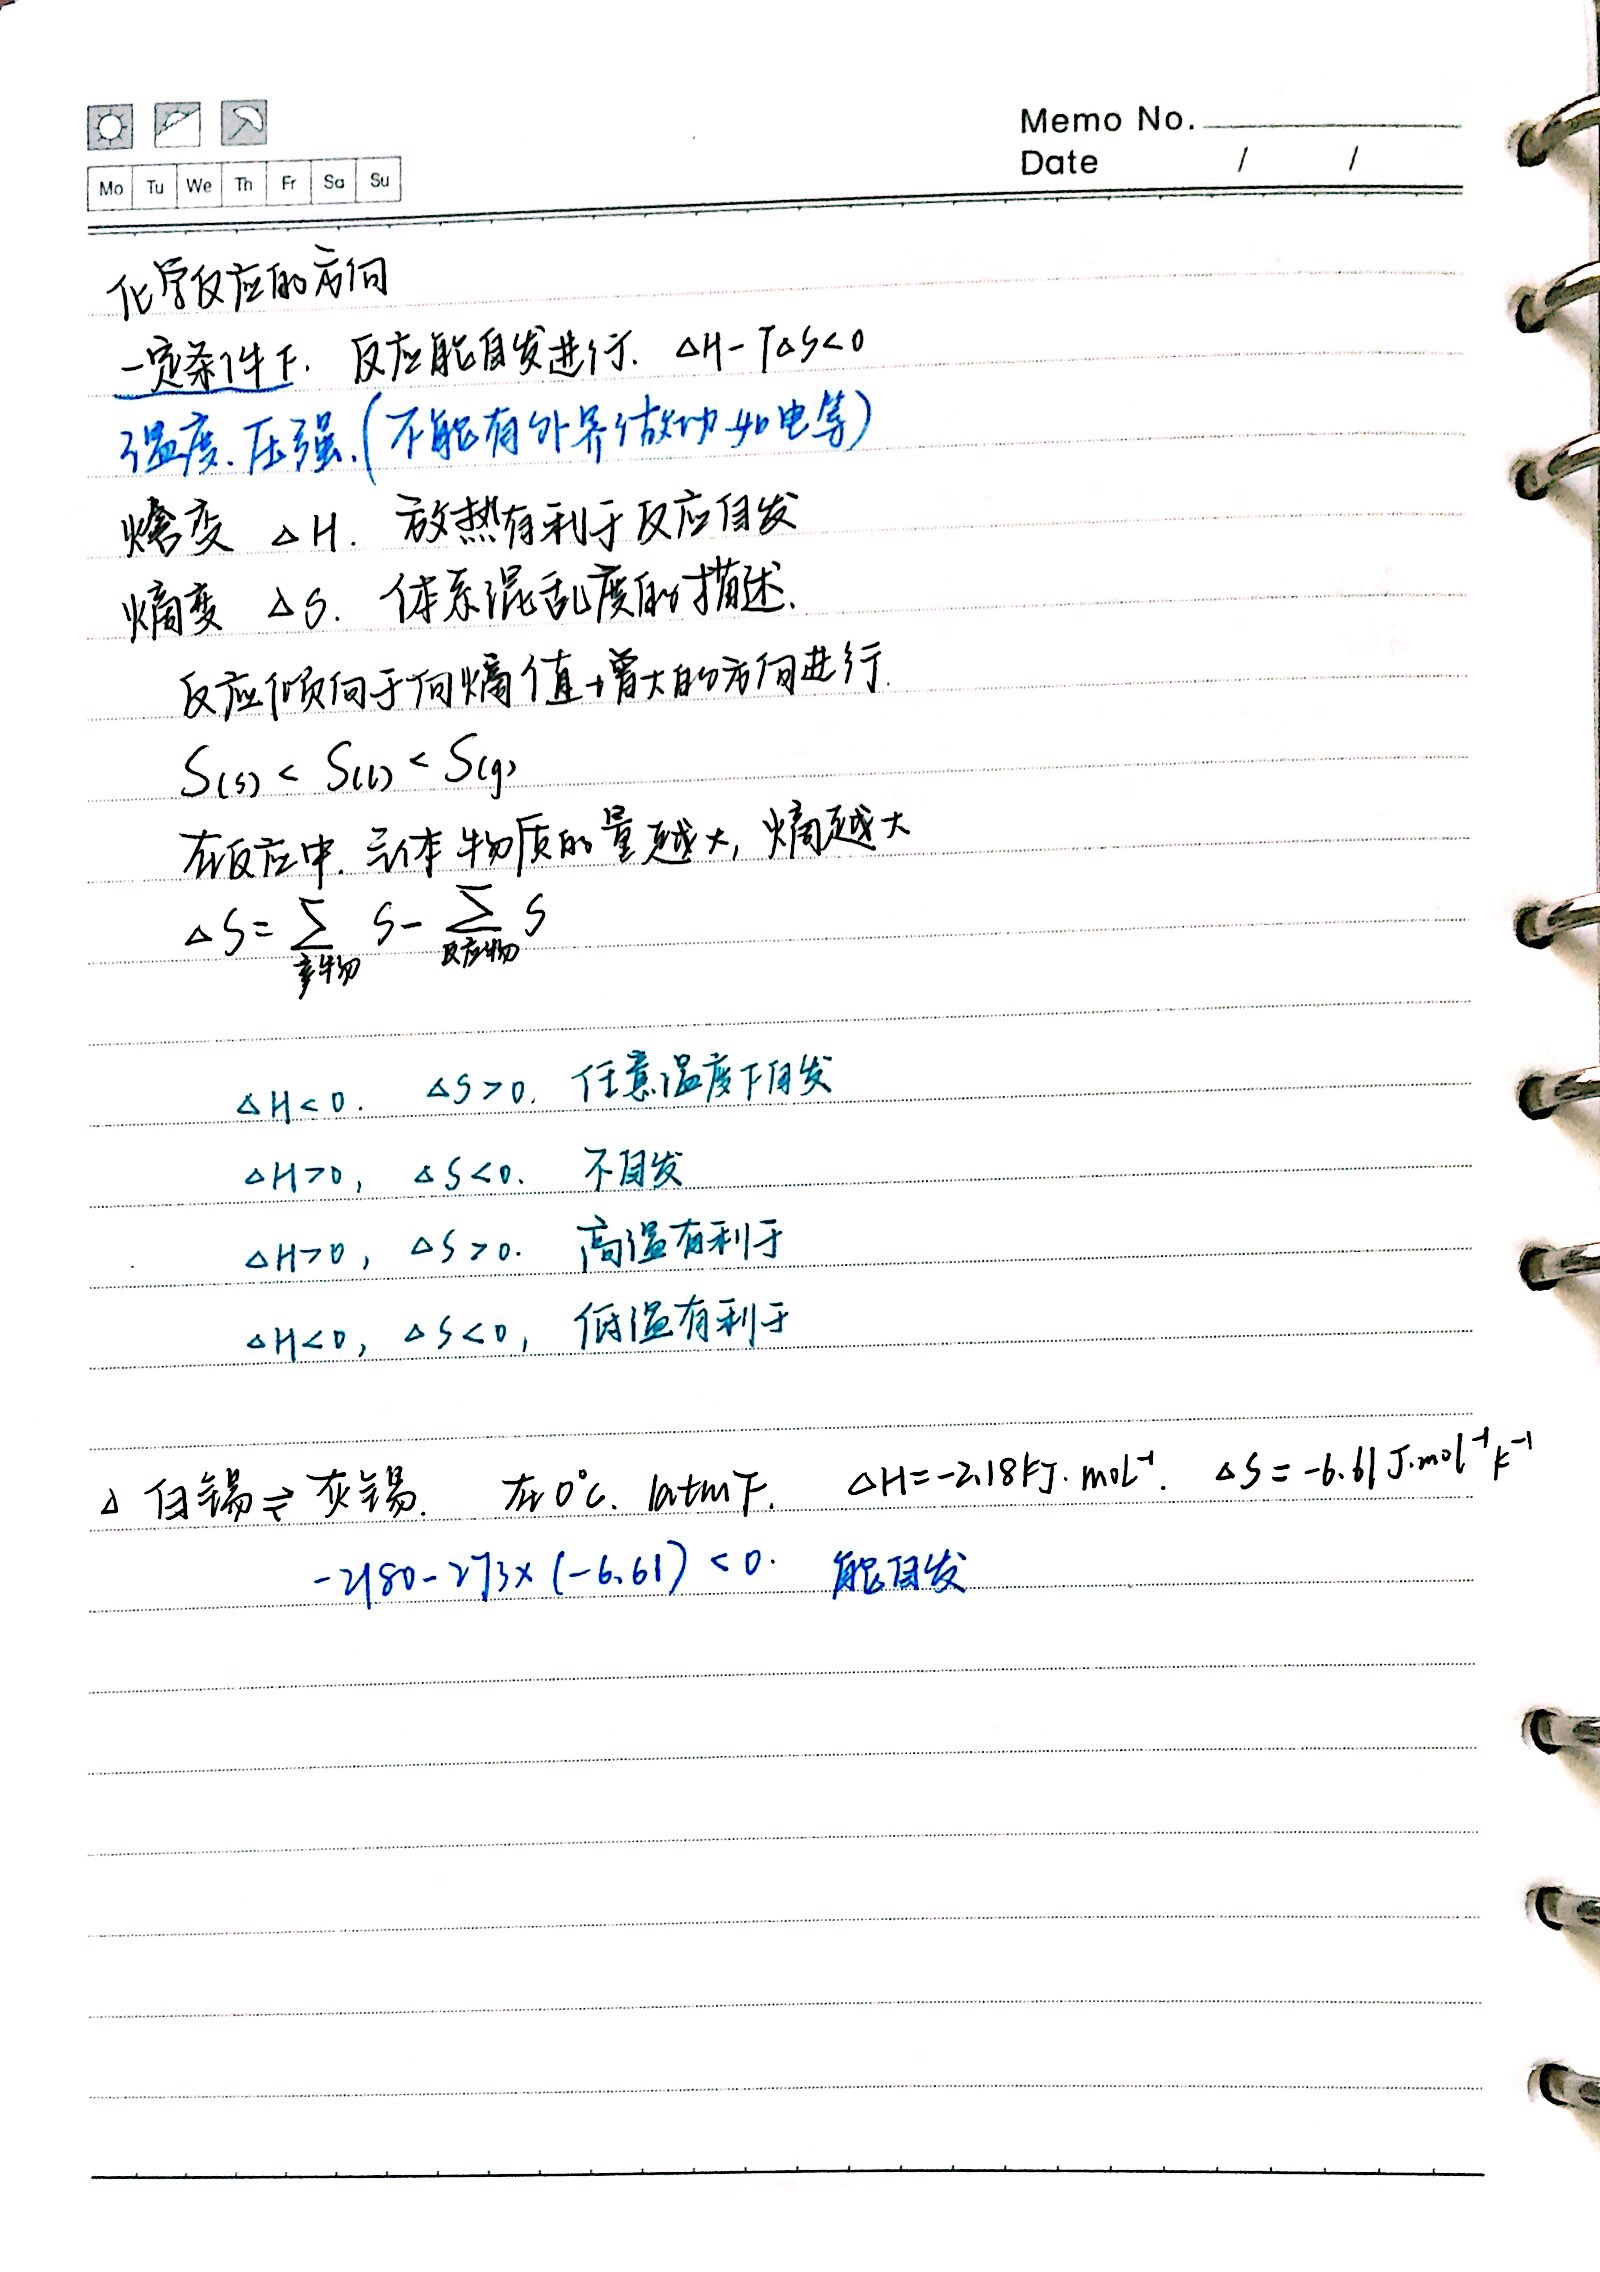 Memo No.
Date / /
Mo Tu We Th Fr Sa Su
化学反应的方向
一定条件下. 反应能自发进行. △H-T△S<0
温度.压强.(不能有外界做功 如电等)
焓变 △H. 放热有利于反应自发
熵变 △S. 体系混乱度的描述.
反应倾向于向熵值增大的方向进行.
S(s) < S(l) < S(g)
在反应中. 气体物质的量越大, 熵越大
△S = ∑产物 S - ∑反应物 S
△H<0. △S>0. 任意温度下自发
△H>0, △S<0. 不自发
△H>0, △S>0. 高温有利于
△H<0, △S<0, 低温有利于
△ 白锡⇌灰锡. 在0℃. 1atm下. △H=-2.18kJ·mol⁻¹. △S=-6.61J·mol⁻¹k⁻¹
-2180-273×(-6.61)<0. 能自发